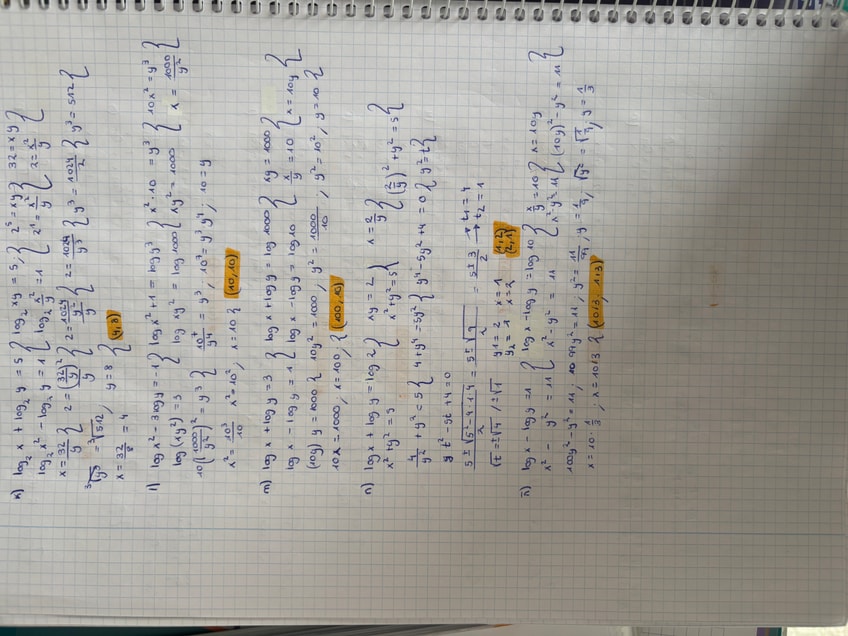 k) log₂ x + log₂ y = 5 } log₂ xy = 5, } 2⁵ = xy } 32 = xy }
log₂ x² - log₂ y = 1 } log₂ x²/y = 1 } 2¹ = x²/y } 2 = x²/y
x = 32/y } 2 = (32/y)²/y } 2 = 1024/y²/y } 2 = 1024/y³ } y³ = 1024/2 } y³ = 512 }
³√y³ = ³√512, y = 8 }
x = 32/8 = 4 (4,8)
l) log x² - 3 log y = -1 } log x² + 1 = log y³ } x² · 10 = y³ } 10x² = y³ }
log (xy²) = 3 } log xy² = log 1000 } xy² = 1000 } x = 1000/y² }
10(1000/y²)² = y³ } 10⁷/y⁴ = y³, 10⁷ = y³y⁴; 10 = y
x² = 10³/10 x² = 10², x = 10 } (10,10)
m) log x + log y = 3 } log x + log y = log 1000 } xy = 1000 }
log x - log y = 1 } log x - log y = log 10 } x/y = 10 } x = 10y }
(10y) y = 1000 } 10y² = 1000, y² = 1000/10, y² = 10², y = 10 }
10x = 1000, x = 100, } (100,10)
n) log x + log y = log 2 } xy = 2 } x = 2/y }
x² + y² = 5 } x² + y² = 5 } (2/y)² + y² = 5 }
4/y² + y² = 5 } 4 + y⁴ = 5y² } y⁴ - 5y² + 4 = 0 } y² = t }
t² - 5t + 4 = 0
5 ± √5² - 4·1·4 / 2 = 5 ± √9 / 2 = 5 ± 3 / 2 → t₁ = 4 → t₂ = 1
√t = ±√4 / ±√1
y₁ = 2 x = 1 (1,2)
y₂ = 1 x = 2 (2,1)
ñ) log x - log y = 1 } log x - log y = log 10 } x/y = 10 } x = 10y
x² - y² = 11 } x² - y² = 11 } x² y² 11 } (10y)² - y² = 11 }
100y² - y² = 11; 99y² = 11, y² = 11/99, y = 1/9, √y² = √1/9; y = 1/3
x = 10 · 1/3; x = 10/3 } (10/3, 1/3)